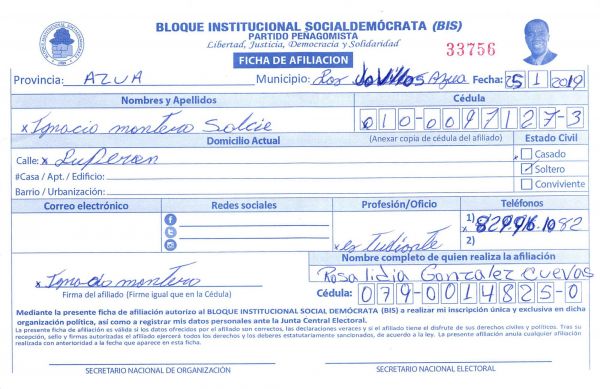 BLOQUE INSTITUCIONAL SOCIALDEMÓCRATA (BIS)
PARTIDO PEÑAGOMISTA
Libertad, Justicia, Democracia y Solidaridad
33756
FICHA DE AFILIACION
Provincia: AZUA Municipio: Los Jovillos Azua Fecha: 25 1 2019
Nombres y Apellidos Cédula
x Ignacio montero 010-0097127-3
Domicilio Actual (Anexar copia de cédula del afiliado) Estado Civil
Calle: x Luperon
Casado
#Casa / Apt. / Edificio:
Soltero
Barrio / Urbanización:
Conviviente
Correo electrónico Redes sociales Profesión/Oficio Teléfonos
1)
x estudiante
2)
Nombre completo de quien realiza la afiliación
x Ignacio montero Rosalidia Gonzalez Cuevas
Firma del afiliado (Firme igual que en la Cédula) Cédula: 079-0014825-0
Mediante la presente ficha de afiliación autorizo al BLOQUE INSTITUCIONAL SOCIAL DEMÓCRATA (BIS) a realizar mi inscripción única y exclusiva en dicha
organización política, así como a registrar mis datos personales ante la Junta Central Electoral.
La presente ficha de afiliación es válida si los datos ofrecidos por el afiliado son correctos, las declaraciones veraces y si el afiliado tiene el disfrute de sus derechos civiles y políticos. Tras su
recepción, sello y firmas autorizadas el afiliado ejercerá todos los derechos y los deberes estatutariamente sancionados, de acuerdo a la ley. La presente afiliación anula cualquier afiliación
realizada con anterioridad a la fecha que aparece en esta ficha.
SECRETARIO NACIONAL DE ORGANIZACIÓN SECRETARIO NACIONAL ELECTORAL